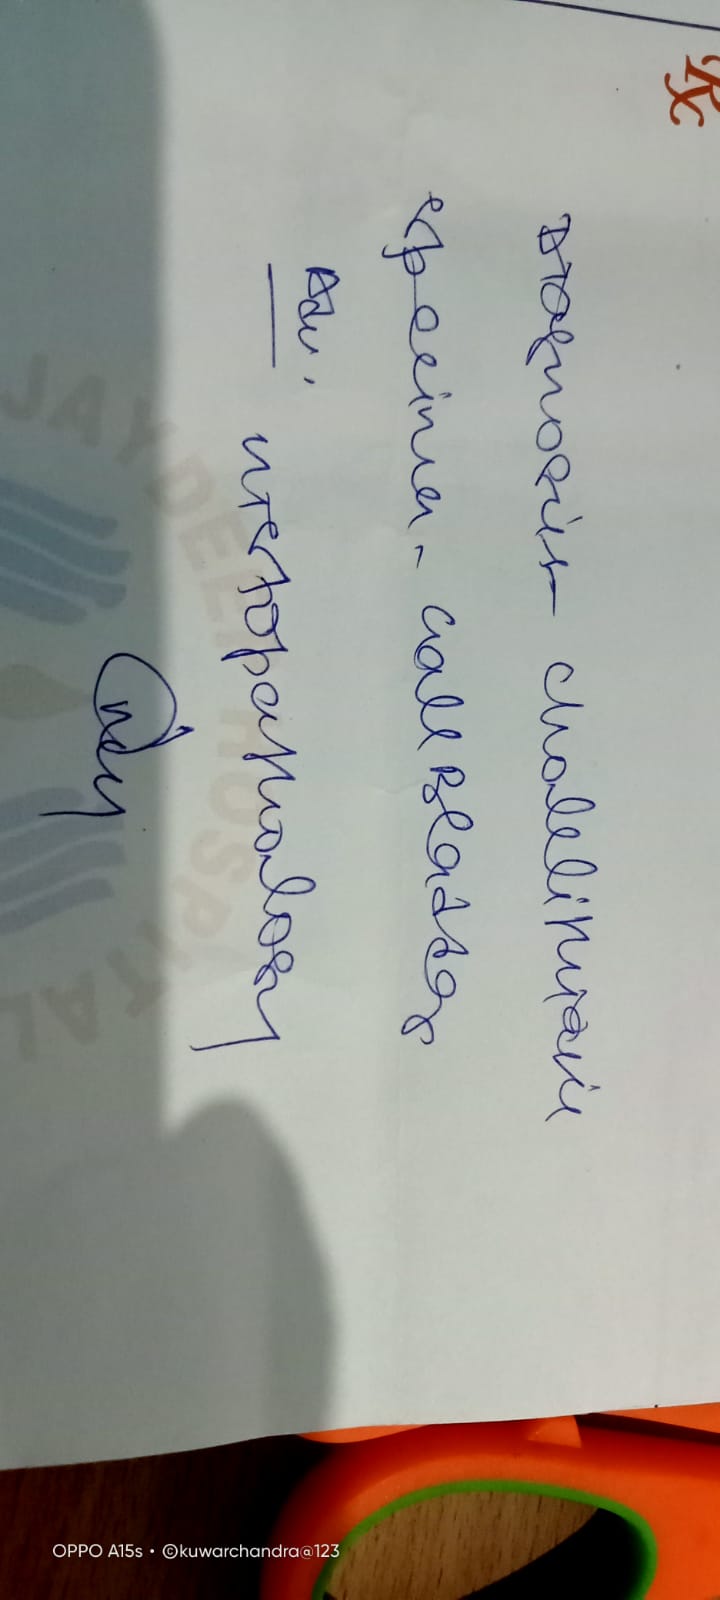 Rx
Diagnosis - cholelithiasis
specimen - Gall Bladder
Adv.
Histopathology
JAYDEEP HOSPITAL
OPPO A15s • ©kuwarchandra@123